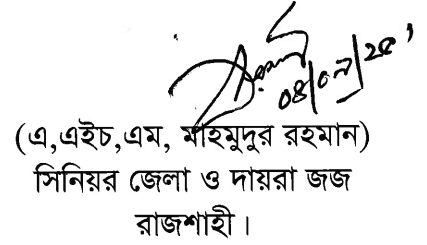 ০৪/০৯/২৫
(এ,এইচ,এম, মাহমুদুর রহমান)
সিনিয়র জেলা ও দায়রা জজ
রাজশাহী।